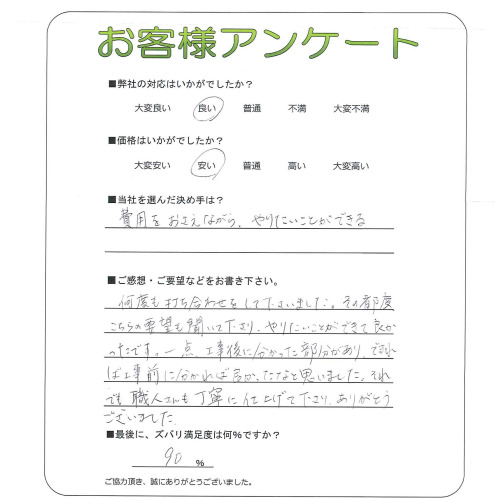 お客様アンケート
■弊社の対応はいかがでしたか？
大変良い 良い 普通 不満 大変不満
■価格はいかがでしたか？
大変安い 安い 普通 高い 大変高い
■当社を選んだ決め手は？
費用をおさえながら、やりたいことができる
■ご感想・ご要望などをお書き下さい。
何度も打ち合わせをして下さいました。その都度
こちらの要望も聞いて下さり、やりたいことができて良か
ったです。一点、工事後に分かった部分があり、できれ
ば工事前に分かれば良かったなと思いました。それ
でも職人さんも丁寧に仕上げて下さり、ありがとう
ございました。
■最後に、ズバリ満足度は何％ですか？
90 ％
ご協力頂き、誠にありがとうございました。